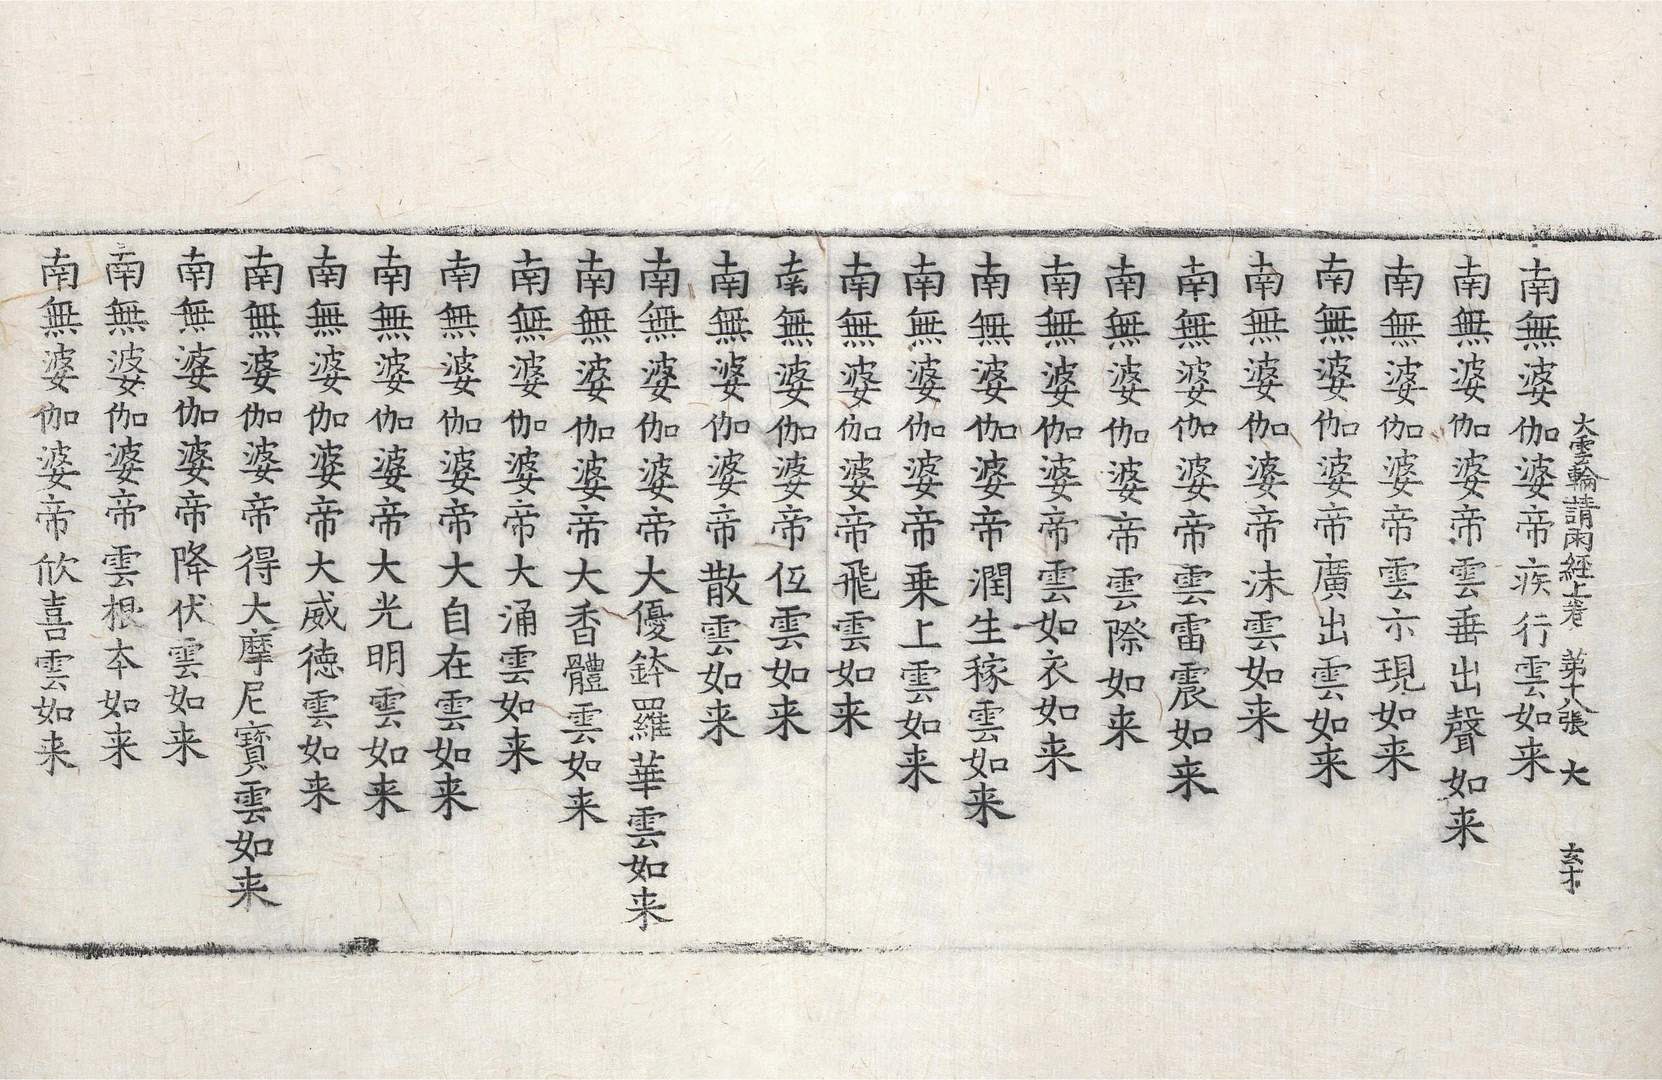 大雲輪請雨經上卷 第十八張 大 玄才
南無婆伽婆帝疾行雲如来
南無婆伽婆帝雲垂出聲如来
南無婆伽婆帝雲示現如来
南無婆伽婆帝廣出雲如来
南無婆伽婆帝沫雲如来
南無婆伽婆帝雲雷震如来
南無婆伽婆帝雲際如来
南無婆伽婆帝雲如衣如来
南無婆伽婆帝潤生稼雲如来
南無婆伽婆帝乗上雲如来
南無婆伽婆帝飛雲如来
南無婆伽婆帝伍雲如来
南無婆伽婆帝散雲如来
南無婆伽婆帝大優鉢羅華雲如来
南無婆伽婆帝大香體雲如来
南無婆伽婆帝大涌雲如来
南無婆伽婆帝大自在雲如来
南無婆伽婆帝大光明雲如来
南無婆伽婆帝大威徳雲如来
南無婆伽婆帝得大摩尼寶雲如来
南無婆伽婆帝降伏雲如来
南無婆伽婆帝雲根本如来
南無婆伽婆帝欣喜雲如来